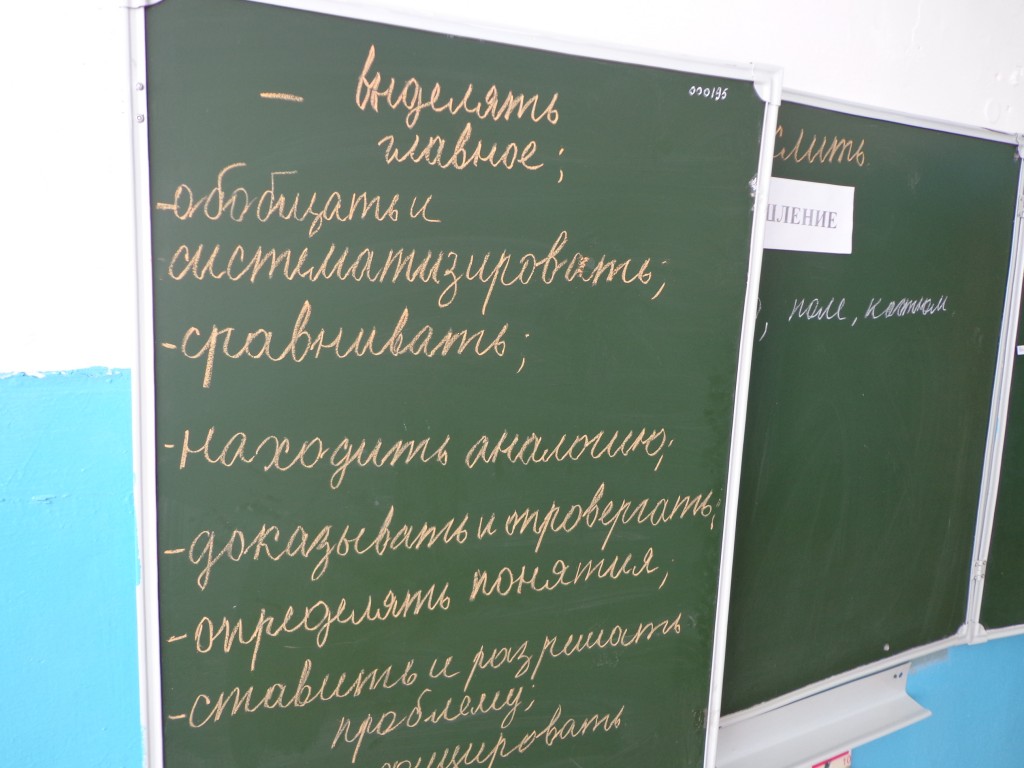 - выделять
главное;
000195
-обобщать и
систематизировать;
-сравнивать;
-находить аналогию;
-доказывать и опровергать;
-определять понятия;
-ставить и разрешать
проблему;
ицировать
слить
ШЛЕНИЕ
, поле, костюм